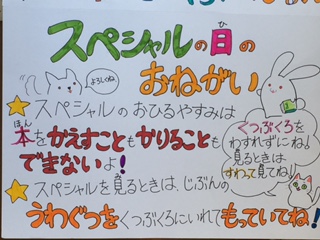 スペシャルの日のおねがい
よろしくね
スペシャルのおひるやすみは
本をかえすこともかりることも
できないよ!
くつぶくろを
わすれずにね♪
見るときは
すわって見てね♪
スペシャルを見るときは、じぶんの
うわぐつをくつぶくろにいれてもっていてね!